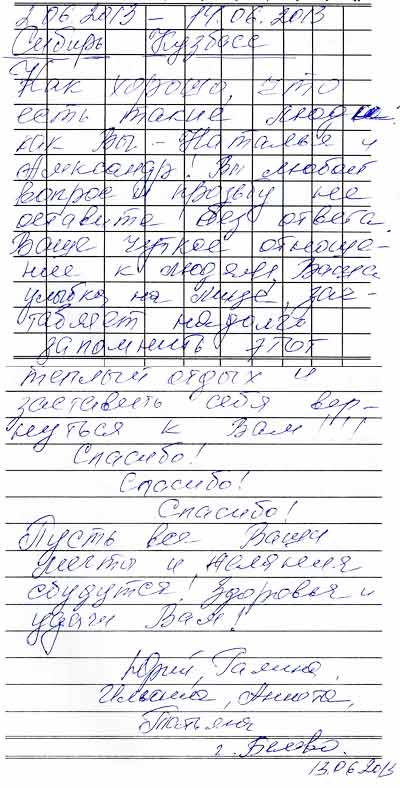 2.06.2013 – 14.06.2013
Сибирь Кузбасс
Как хорошо, что
есть такие люди
как Вы - Наталья и
Александр! Вы любой
вопрос и просьбу не
оставите без ответа.
Ваше чуткое отноше-
ние к людям, Ваша
улыбка на лице, зас-
тавляет надолго
запомнить этот
теплый отдых и
заставить себя вер-
нуться к Вам!!!!
Спасибо!
Спасибо!
Спасибо!
Пусть все Ваши
мечты и желания
сбудутся! Здоровья и
удачи Вам!
Юрий, Галина,
Ильяна, Аннота,
Татьяна
г. Белово.
13.06.2013